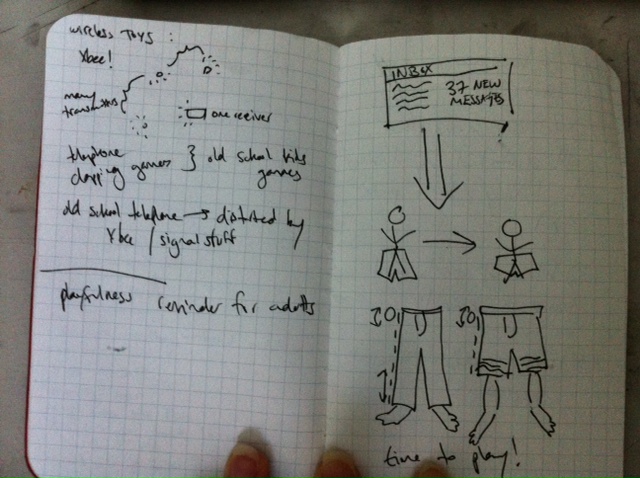 wireless TOYS :
Xbee!
many
transmitters
one receiver
telephone
clapping games } old school kids
games
old school telephone → distorted by
Xbee / signal stuff
playfulness reminder for adults
INBOX
37 NEW
MESSAGES
time to play!